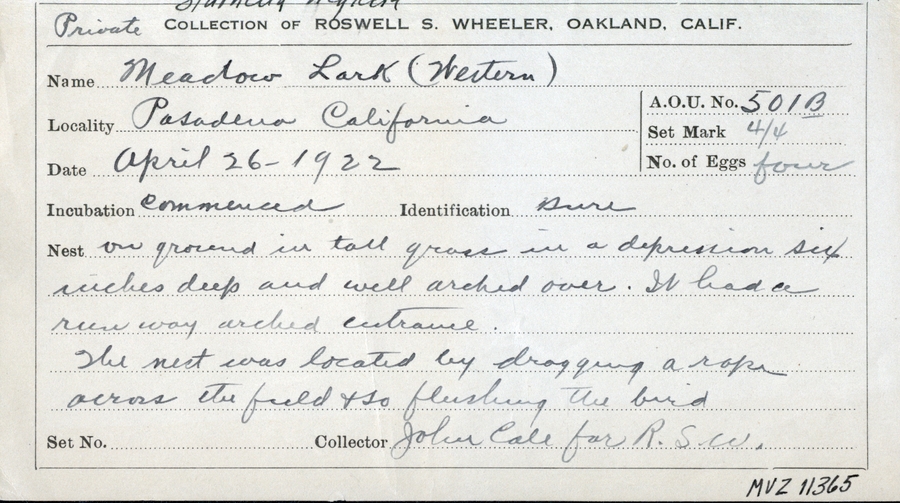 Private COLLECTION OF ROSWELL S. WHEELER, OAKLAND, CALIF.
Name Meadow Lark (Western)
A.O.U. No. 501B
Locality Pasadena California
Set Mark 4/4
Date April 26-1922
No. of Eggs four
Incubation Commenced Identification Sure
Nest on ground in tall grass in a depression six
inches deep and well arched over. It had a
run way arched entrance.
The nest was located by dragging a rope
across the field & so flushing the bird
Set No. Collector John Cole for R.S.W.
MVZ 11365